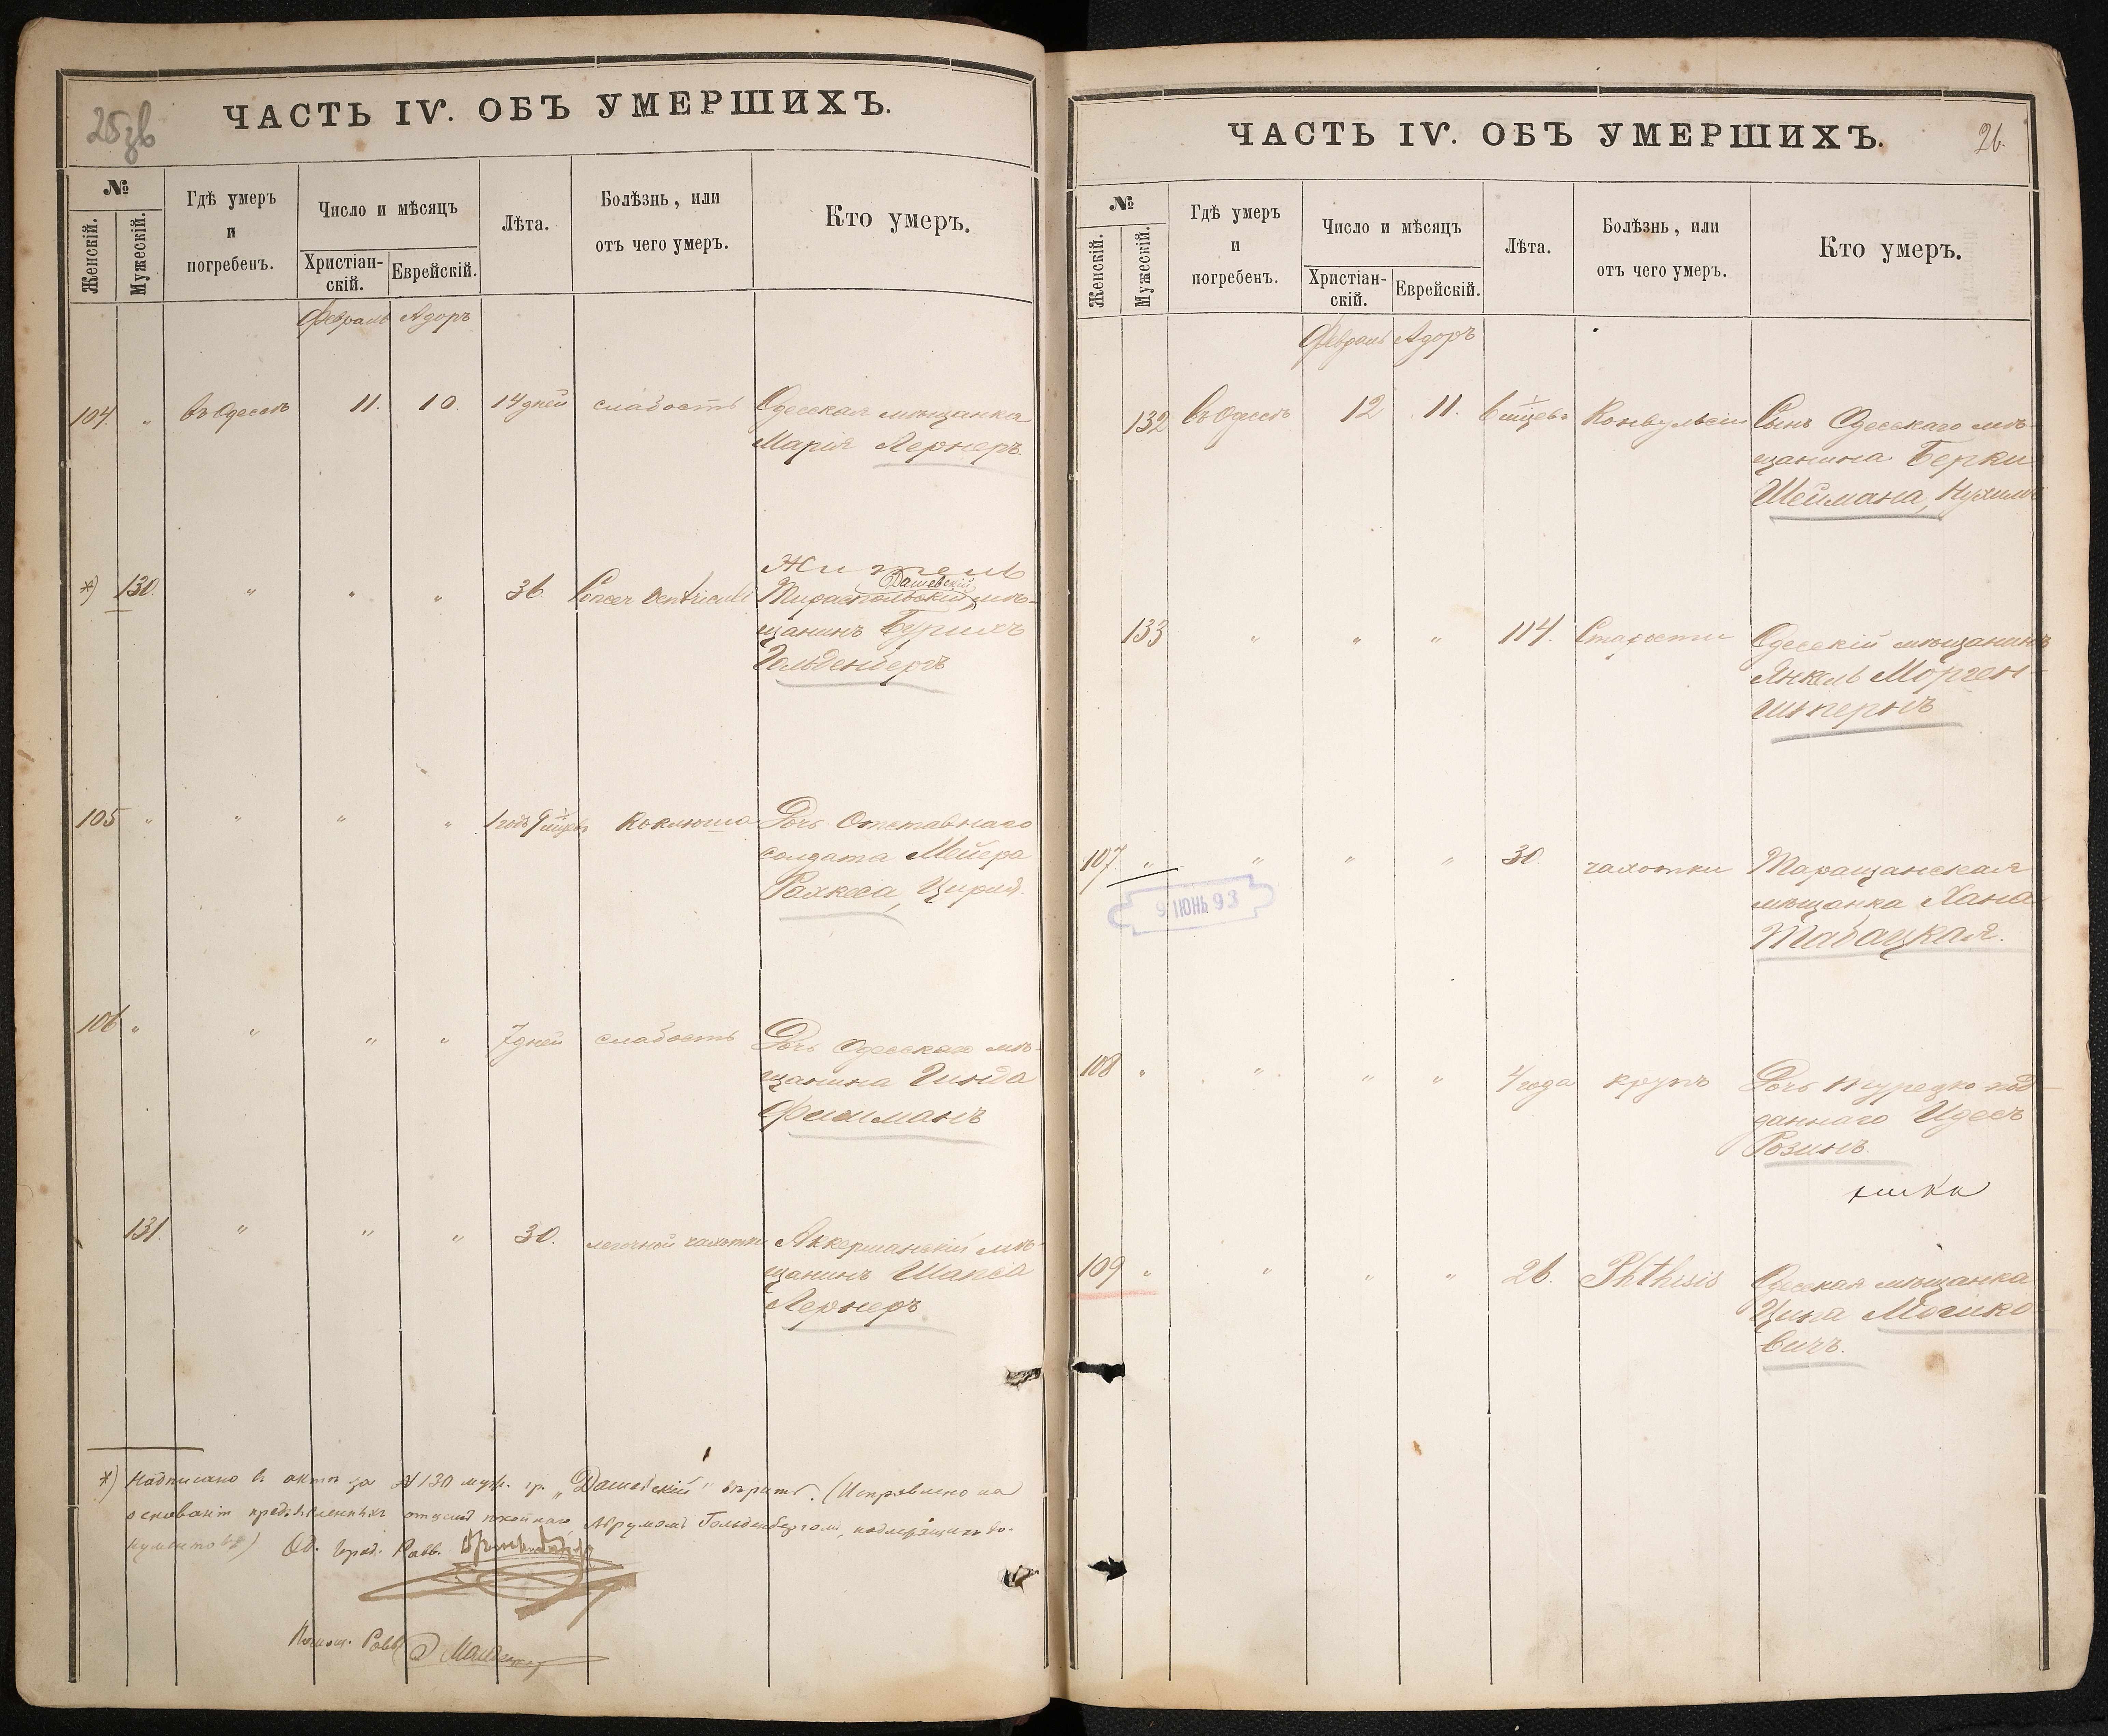 25зв
ЧАСТЬ IV. ОБЪ УМЕРШИХЪ.
№
Женскій.
Мужескій.
Гдѣ умеръ
и
погребенъ.
Число и мѣсяцъ
Христіан-
скій.
Еврейскій.
Лѣта.
Болѣзнь, или
отъ чего умеръ.
Кто умеръ.
Февраль Адоръ
104. " въ Одессѣ 11. 10. 14 дней слабость Одесская мѣщанка
Марія Лернеръ.
Житель
Дашевскій
*) 130. " " " 36. Cancer Ventriculi Тираспольскій мѣ-
щанинъ Бурихъ
Гольденбергъ
105 " " " " 1 годъ 9 мцевъ Коклюша Дочь Отставнаго
солдата Мейера
106 " " " " 7 дней слабость Дочь Одесскаго мѣ-
щанина Гинда
Фишманъ
131. " " " 30. легочной чахотки Аккерманскій мѣ-
щанинъ Шапса
Лернеръ
*) Надписано въ актѣ за № 130 муж. гр. „Дашевскій" вѣрить. (Исправлено на
основаніи представленныхъ отцемъ покойнаго, Абрумомъ Гольденбергомъ, надлежащихъ до-
кументовъ) Од. Град. Равв.
Помощ. Равв.
26.
ЧАСТЬ IV. ОБЪ УМЕРШИХЪ.
№
Женскій.
Мужескій.
Гдѣ умеръ
и
погребенъ.
Число и мѣсяцъ
Христіан-
скій.
Еврейскій.
Лѣта.
Болѣзнь, или
отъ чего умеръ.
Кто умеръ.
Февраль Адоръ
132 въ Одессѣ 12 11. 6 мцевъ Конвульсіи Сынъ Одесскаго мѣ-
щанина Берки
Шеймана, Нухимъ
133 " " " 114. Старости Одесскій мѣщанинъ
Янкель Морген-
штернъ
107. " " " " 30. чахотки Таращанская
мѣщанка Хана
Табацкая.
9 ІЮНЬ 93
108 " " " " 4 года крупъ Дочь турецко-под-
даннаго Идесъ
Розинъ.
109 " " " " 26. Phthisis Одесская мѣщанка
Цина Мошко-
вичъ.